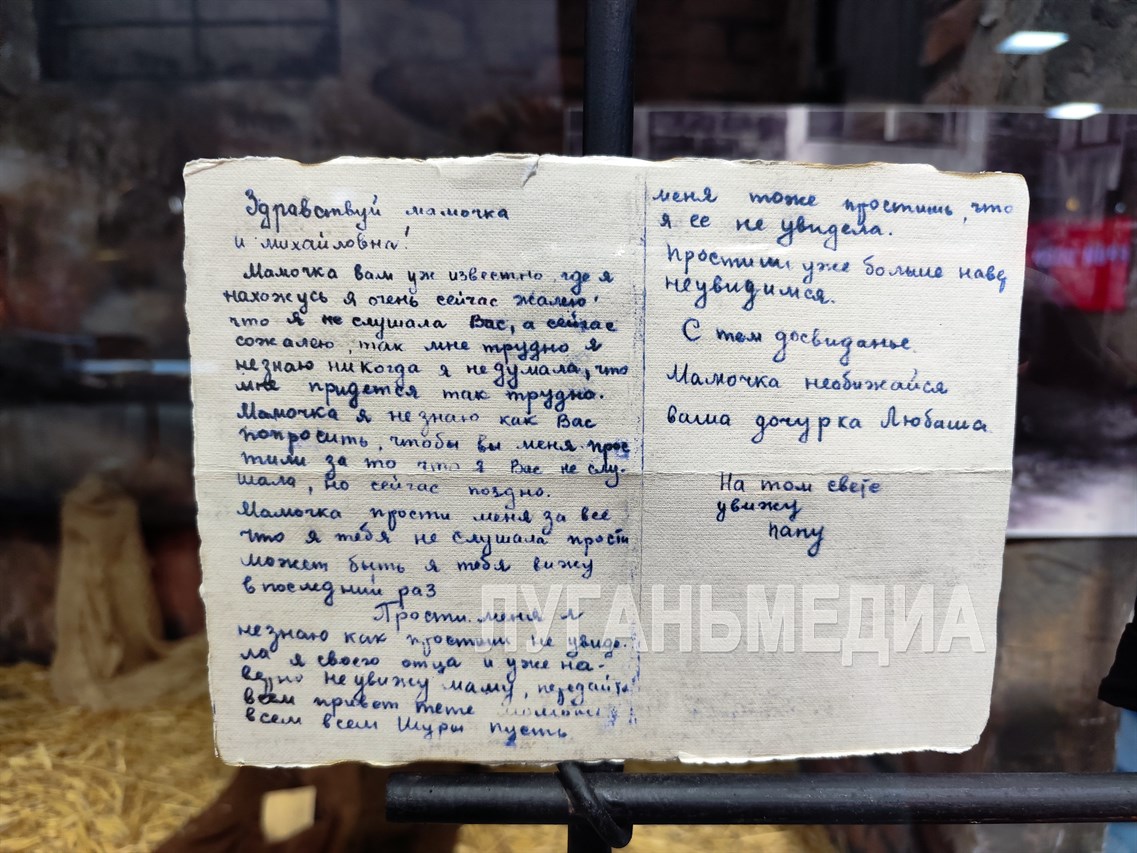 Здравствуй мамочка
и Михайловна!
Мамочка вам уж известно где я
нахожусь я очень сейчас жалею
что я не слушала Вас, а сейчас
сожалею, так мне трудно я
незнаю никогда я недумала, что
мне придется так трудно.
Мамочка я незнаю как Вас
попросить, чтобы вы меня прос
тили за то что я Вас не слу-
шала, но сейчас поздно.
Мамочка прости меня за все
что я тебя не слушала прости
может быть я тебя вижу
в последний раз
Прости меня я
незнаю как простиш не увиде-
ла я своего отца и уже на-
верно неувижу маму, передайте
всем привет тете
всем всем Шуры пусть
меня тоже простишь, что
я ее не увидела.
Простиш уже больше навер
неувидимся.
С тем досвиданье.
Мамочка необижайся
ваша дочурка Любаша.
На том свете
увижу
папу
ЛУГАНЬМЕДИА